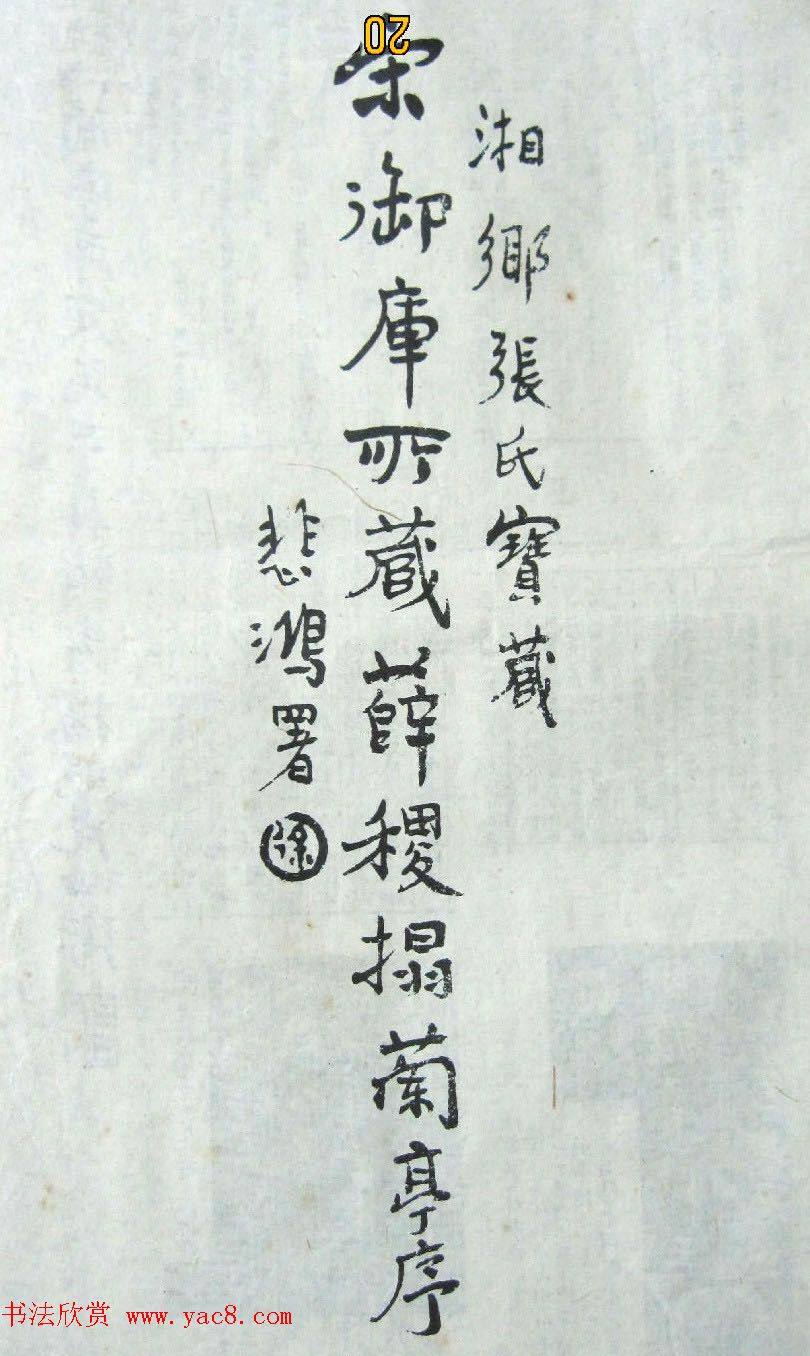 20
湘鄉張氏寶藏
宋御庫所藏薛稷搨蘭亭序
悲鴻署
徐
书法欣赏 www.yac8.com